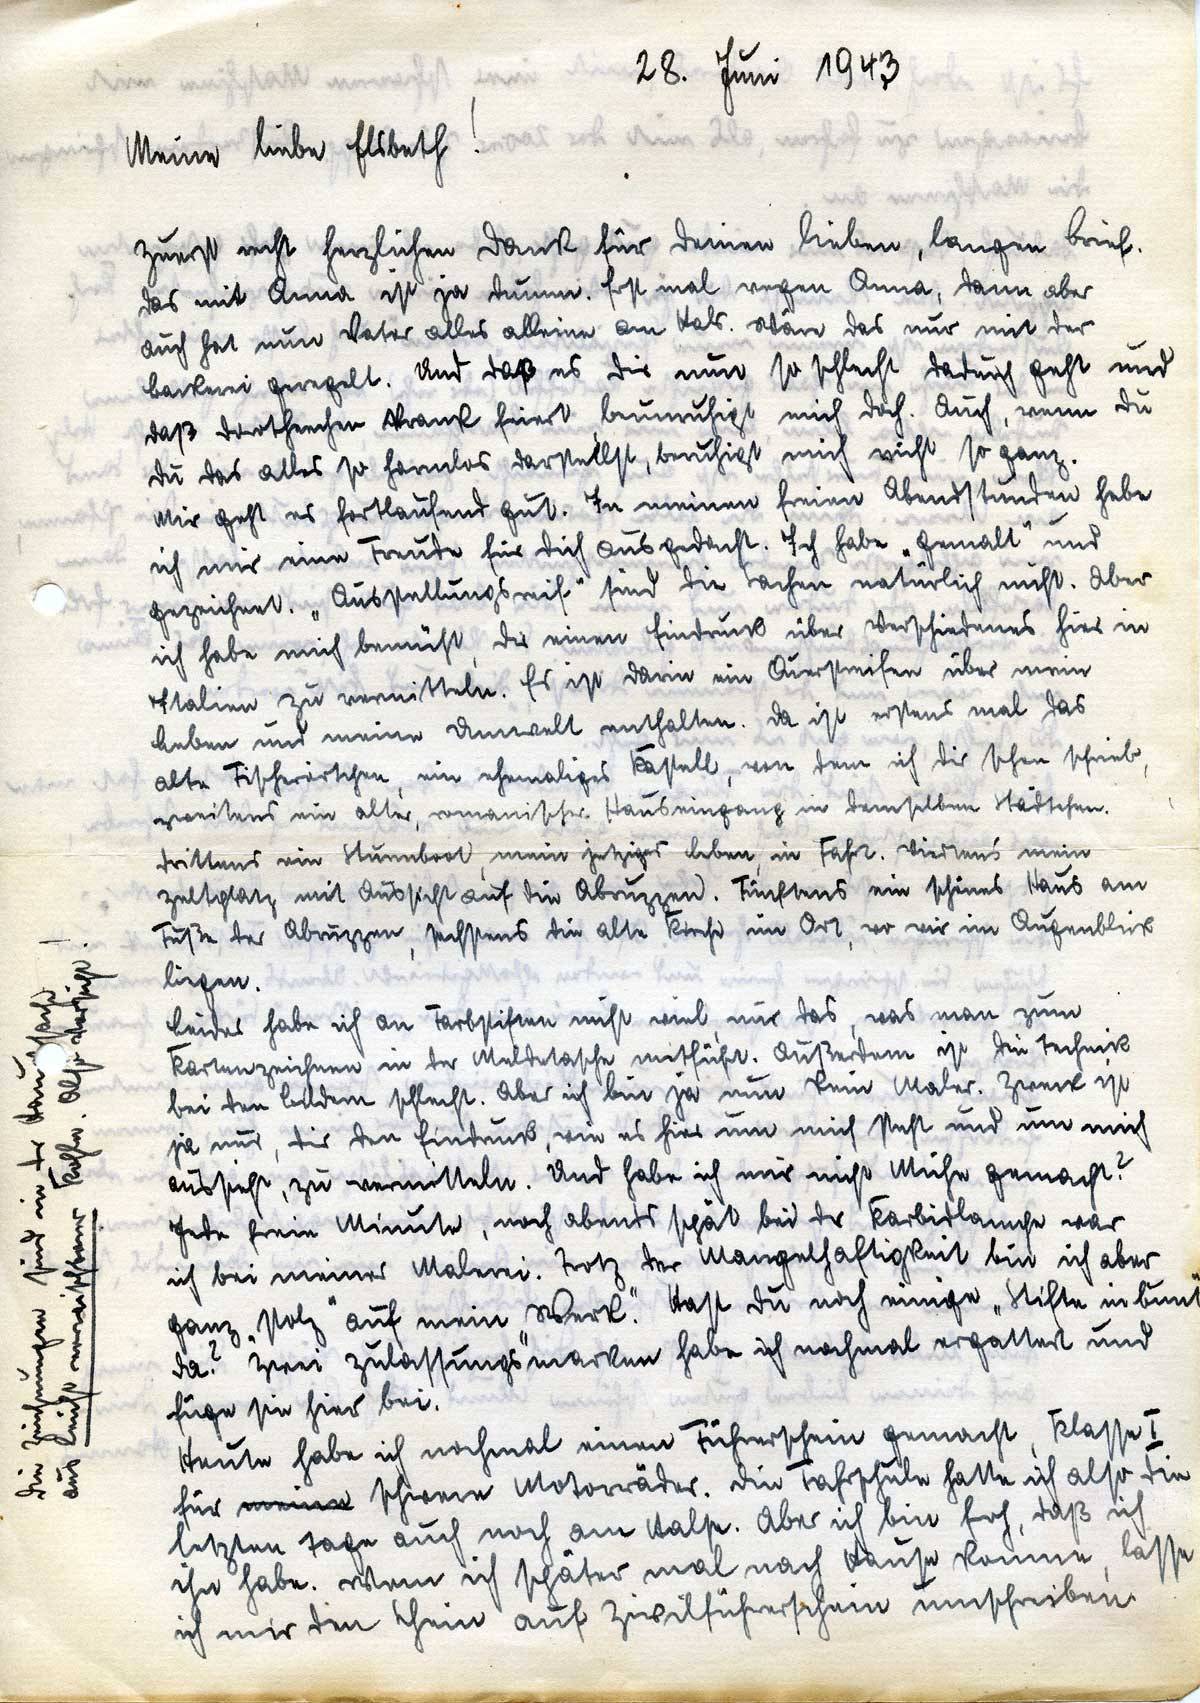 28. Juni 1943
Meine liebe Elsbeth!
Zuerst recht herzlichen Dank für Deinen lieben, langen Brief.
Das mit Anna ist ja dumm. Erst mal wegen Anna, dann aber
auch hat nun Vater alles alleine am Hals. Wäre das nur mit der
Backerei geregelt. Und daß es Dir nun so schlecht dadurch geht und
daß Dortheechen krank feiert beunruhigt mich doch. Auch, wenn Du
Du das alles so harmlos darstellst, beruhigt mich nicht so ganz.
Mir geht es fortlaufend gut. In meinen freien Abendstunden habe
ich mir eine Freude für Dich ausgedacht. Ich habe „gemalt" und
gezeichnet. „Ausstellungsreif" sind die Sachen natürlich nicht. Aber
ich habe mich bemüht, Dir einen Eindruck über Verschiedenes hier in
Italien zu vermitteln. Es ist darin ein Querstreifen über mein
Leben und meine Umwelt enthalten. Da ist erstens mal das
alte Fischerörtchen, ein ehemaliges Kastell, von dem ich Dir schon schrieb,
zweitens ein alter, romanischer Hauseingang in demselben Städtchen.
Drittens ein Sturmboot, mein jetziges Leben, in Fahrt. Viertens mein
Zeltplatz mit Aussicht auf die Abruzzen). Fünftens ein schönes Haus am
Fuße der Abruzzen, sechstens die alte Kirche im Ort, wo wir im Augenblick
liegen.
Leider habe ich an Farbstiften nicht viel, nur das, was man zum
Kartenzeichnen in der Meldetasche mitführt. Außerdem ist die Technik
bei den Bildern schlecht. Aber ich bin ja nun kein Maler. Zweck ist
ja nur, Dir den Eindruck, wie es hier um mich steht und um mich
aussieht, zu vermitteln. Und habe ich mir nicht Mühe gemacht?
Jede freie Minute, noch abends spät bei der Karbidlampe war
ich bei meiner Malerei. Trotz der Mangelhaftigkeit bin ich aber
ganz „stolz" auf mein „Werk". Hast Du noch einige „Stifte in bunt"
da? Zwei „Zulassungs"marken habe ich nochmal ergattert und
füge sie hier bei.
Heute habe ich nochmal einen Führerschein gemacht, Klasse I
für meine schwere Motorräder. Die Fahrschule hatte ich also die
letzten Tage auch noch am Halse. Aber ich bin froh, daß ich
ihn habe. Wenn ich später mal nach Hause komme, lasse
ich mir den Schein auf Zivilführerschein umschreiben.
Die Zeichnungen sind in der Hauptsache
aus leicht verwischbarer Kohle. Also Vorsicht!